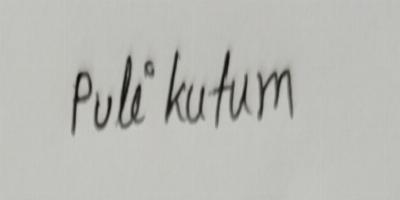 Puli kutum